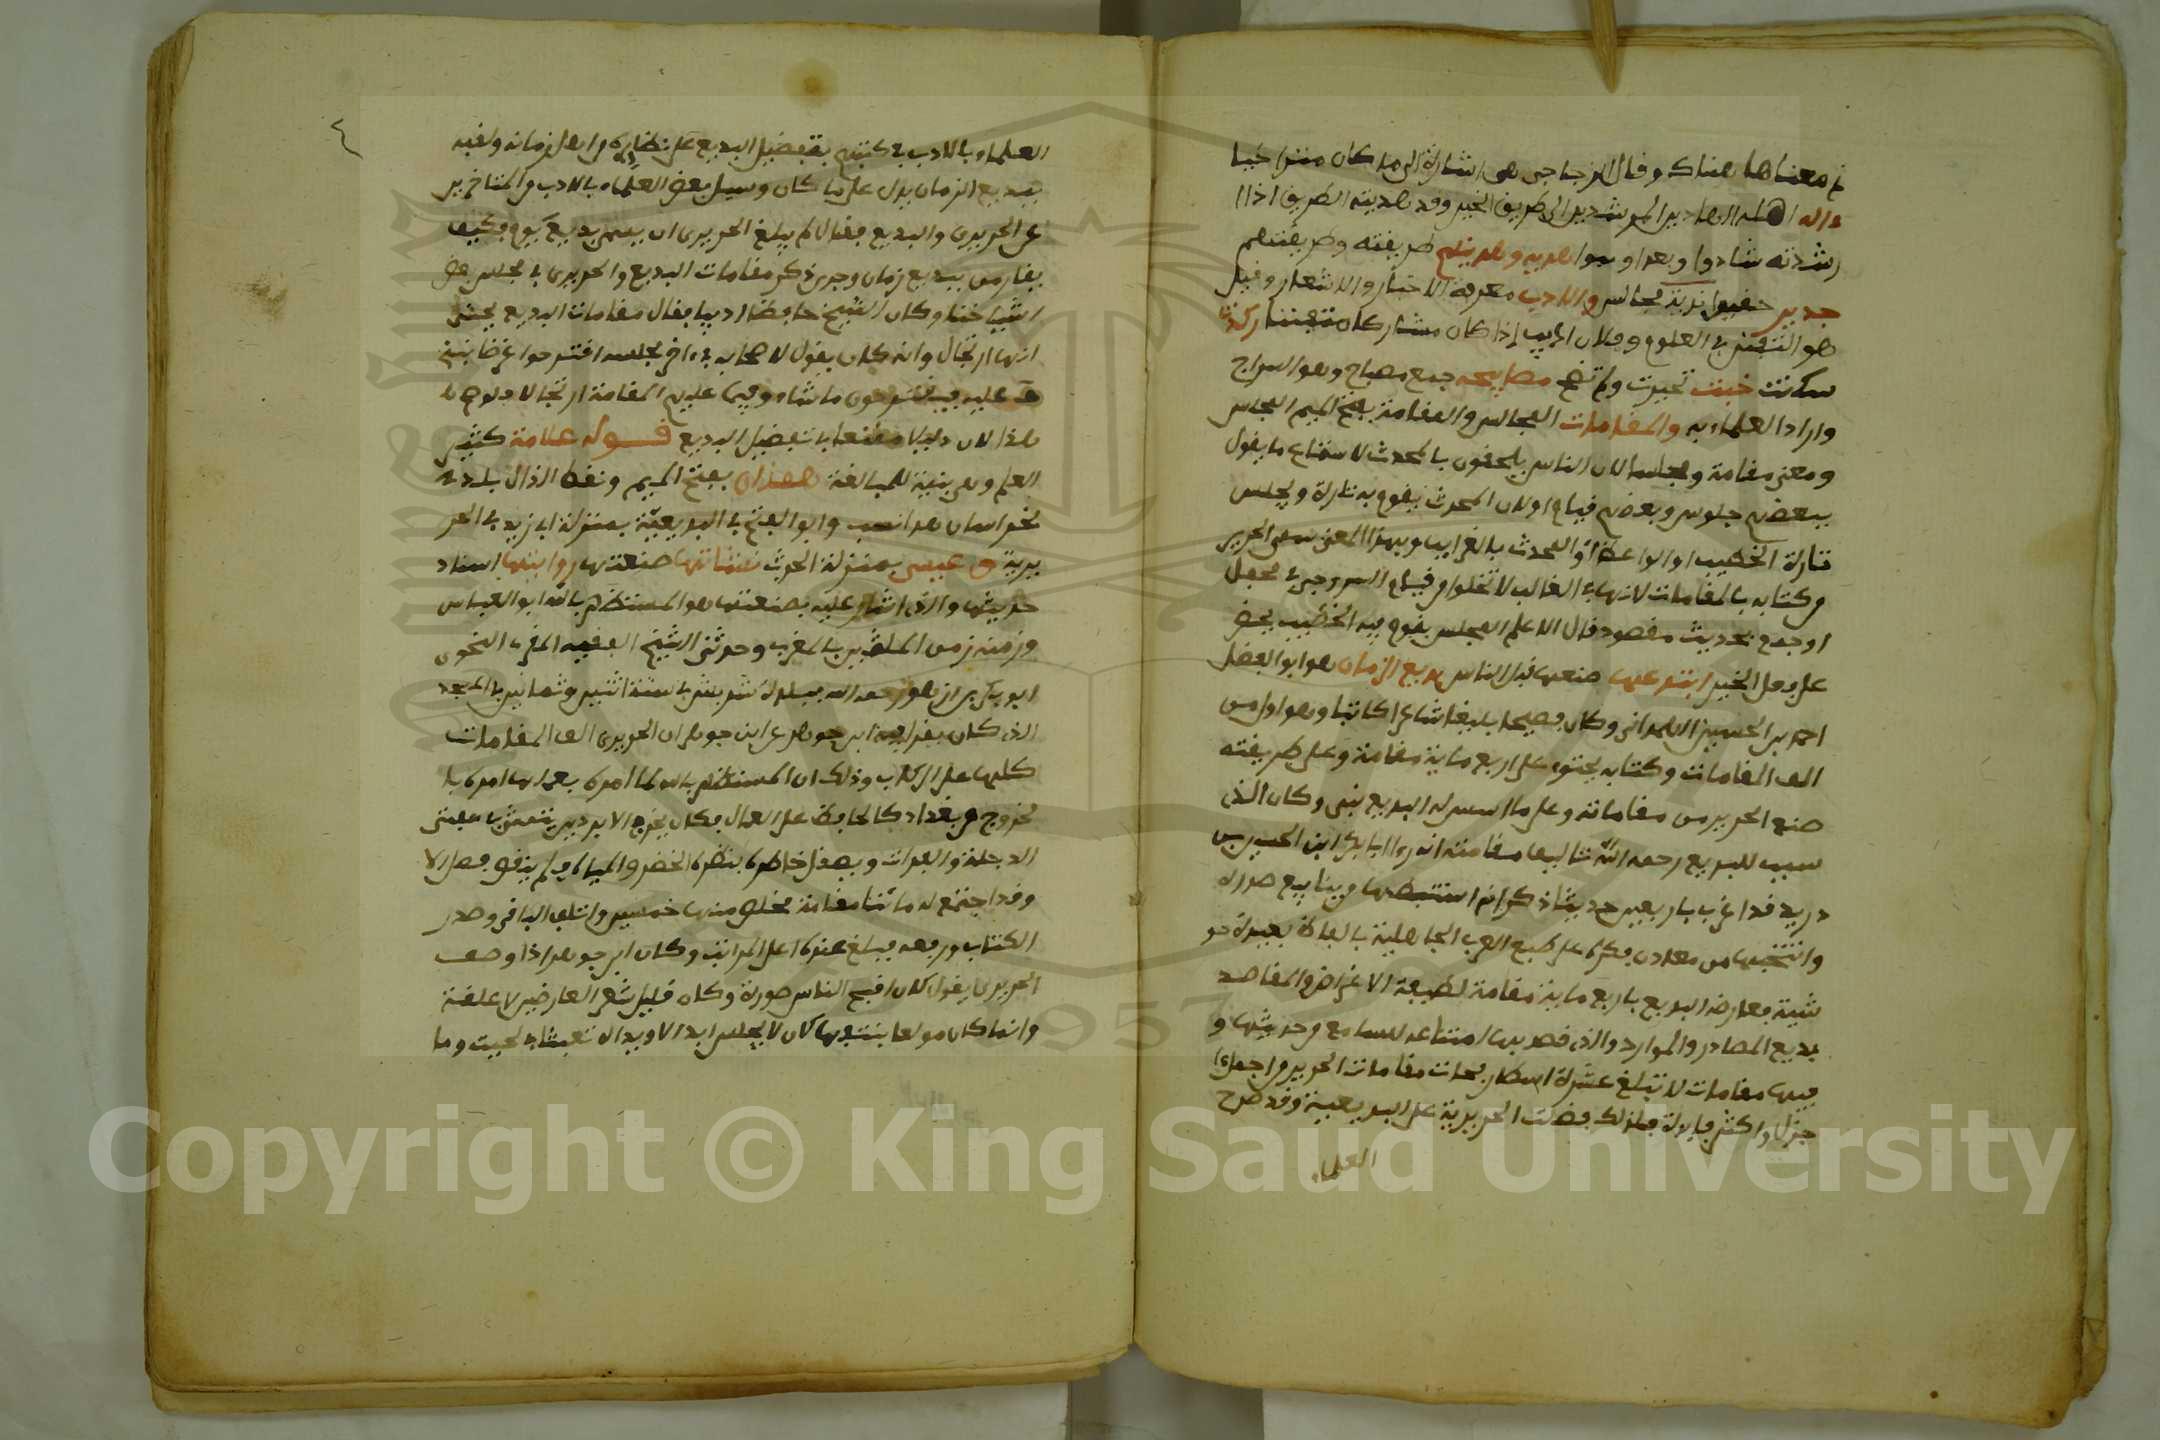 ثم معناها هناك وقال الزجاجي هي اشارة الى ما كان متراخيا
واله اهله الهادين المرشدين الى طريق الخير وقد هديته الطريق اذا
رشدته شادوا وبعدا وسوا هديه وهديتهم طريقته وطريقتهم
جدير حقيق اندية مجالس والادب معرفة الاخبار والاشعار وقيل
هو التفنن في العلوم وفلان اديب إذا كان مشاركا متفننا ركدت
سكنت خبت تغيرت ولم تضء مصابيحه جمع مصباح وهو السراج
واراد العلماء به والمقامات المجالس والمقامة بفتح الميم المجلس
ومعنى مقامة ومجلسا لان الناس يلحقون بالمحدث لاستماع ما يقول
فبعضهم جلوس وبعضهم قيام او لان المحدث يقوم به تارة ويجلس
تارة الخطيب او الواعظ او المحدث بالغرايب وبهذا المعنى سمى الحرير
ي كتابه بالمقامات لانها في الغالب لا تخلوا من قيام السروجي في محفل
او جمع بحديث مقصود قال الاعلم المجلس يقوم فيه الخطيب يحض
على فعل الخير ابتدعها صنعها قبل الناس بديع الزمان هو ابو الفضل
احمد بن الحسين الهمداني وكان فصيحا بليغا شاعرا كاتبا وهو اول من
الف المقامات وكتابه يحتوي على اربع ماية مقامة وعلى طريقته
صنع الحريري مقاماته وعلى ما اسس له البديع بنى وكان الذي
سبب للبديع رحمه الله تاليف مقامته انه رءا ابا بكر ابن الحسين بن
دريد قد اغرب باربعين حديثا ذكر انه استنبطها من ينابيع صدره
وانتخبها من معادن فكره على طبع العرب الجاهلية بالفاظ بعيدة حو
شية فعارضه البديع باربع ماية مقامة لطيفة الاغراض والمقاصد
بديع المصادر والموارد والذي قصد بها امتاع السامع وحديثها و
فيها مقامات لا تبلغ عشرة اسطار فجات مقامات الحريري اجمل
جزل واكثر فايدة فلذلك فضلت الحريرية على البديعية وقد صرح
العلماء
العلماء بالادب في كتبهم بتفضيل البديع على نظايره من اهل زمانه ولقبه
ببديع الزمان يدل على ما كان وسيل بعض العلماء بالادب من المتاخرين
عن الحريري والبديع فقال لم يبلغ الحريري ان يسمى بديع يوم فكيف
يقارن ببديع زمان وجرى ذكر مقامات البديع والحريري في مجلس بعض
اشياخنا وكان الشيخ حافظا اديبا فقال مقامات البديع يحكى
انها ارتجال وانه كان يقول لاصحابه في ءاخر مجلسه اقترحوا غرضا نبنى
عليه فيقترحون ما شاءوا فيملى عليهم المقامة ارتجالا
هذا لكان دليلا مقنعا في تفضيل البديع قوله علامة كثير
العلم وهي بنية للمبالغة همذان بفتح الميم ونقط الذال بلدة
بخراسان هذا نسب وابو الفتح في البديعية بمنزلة ابي زيد في الحر
يرية وعيسى بمنزلة الحرث نشاتها صنعتها روايتها اسناد
حديثها والذي اشار عليه بصنعتها هو المستظهر بالله ابو العباس
وزمنه زمن الملثمين بالمغرب وحدثني الشيخ الفقيه المقرئ النحوي
ابو بكر بن ازهر رحمه الله ببلدة شريش في سنة اثنين وثمانين في المسجد
الذي كان يقرا فيه ابن جوهر عن ابن جوهر ان الحريري الف المقامات
كلها على الركاب وذلك ان المستظهر بالله لما امره بعملها امره با
لخروج من بغداد كالحافظ على العمال فكان يخرج الابردين يتمشى في ضفتي
الدجلة والفرات ويصقل خاطره بنظره الخضر والمياه فلم ينقض فصل الا
وقد اجتمع له مائتا مقامة فخلص منها خمسين واتلف الباقي وصدر
الكتاب ورفعه فبلغ عنده اعلى المراتب وكان ابن جوهر اذا وصف
الحريري يقول كان اقبح الناس صورة وكان قليل شعر العارضين لا علقة
وانما كان مولعا بنتفها كان لا يجلس ابدا الا ويداه تعبثان بلحيته وما